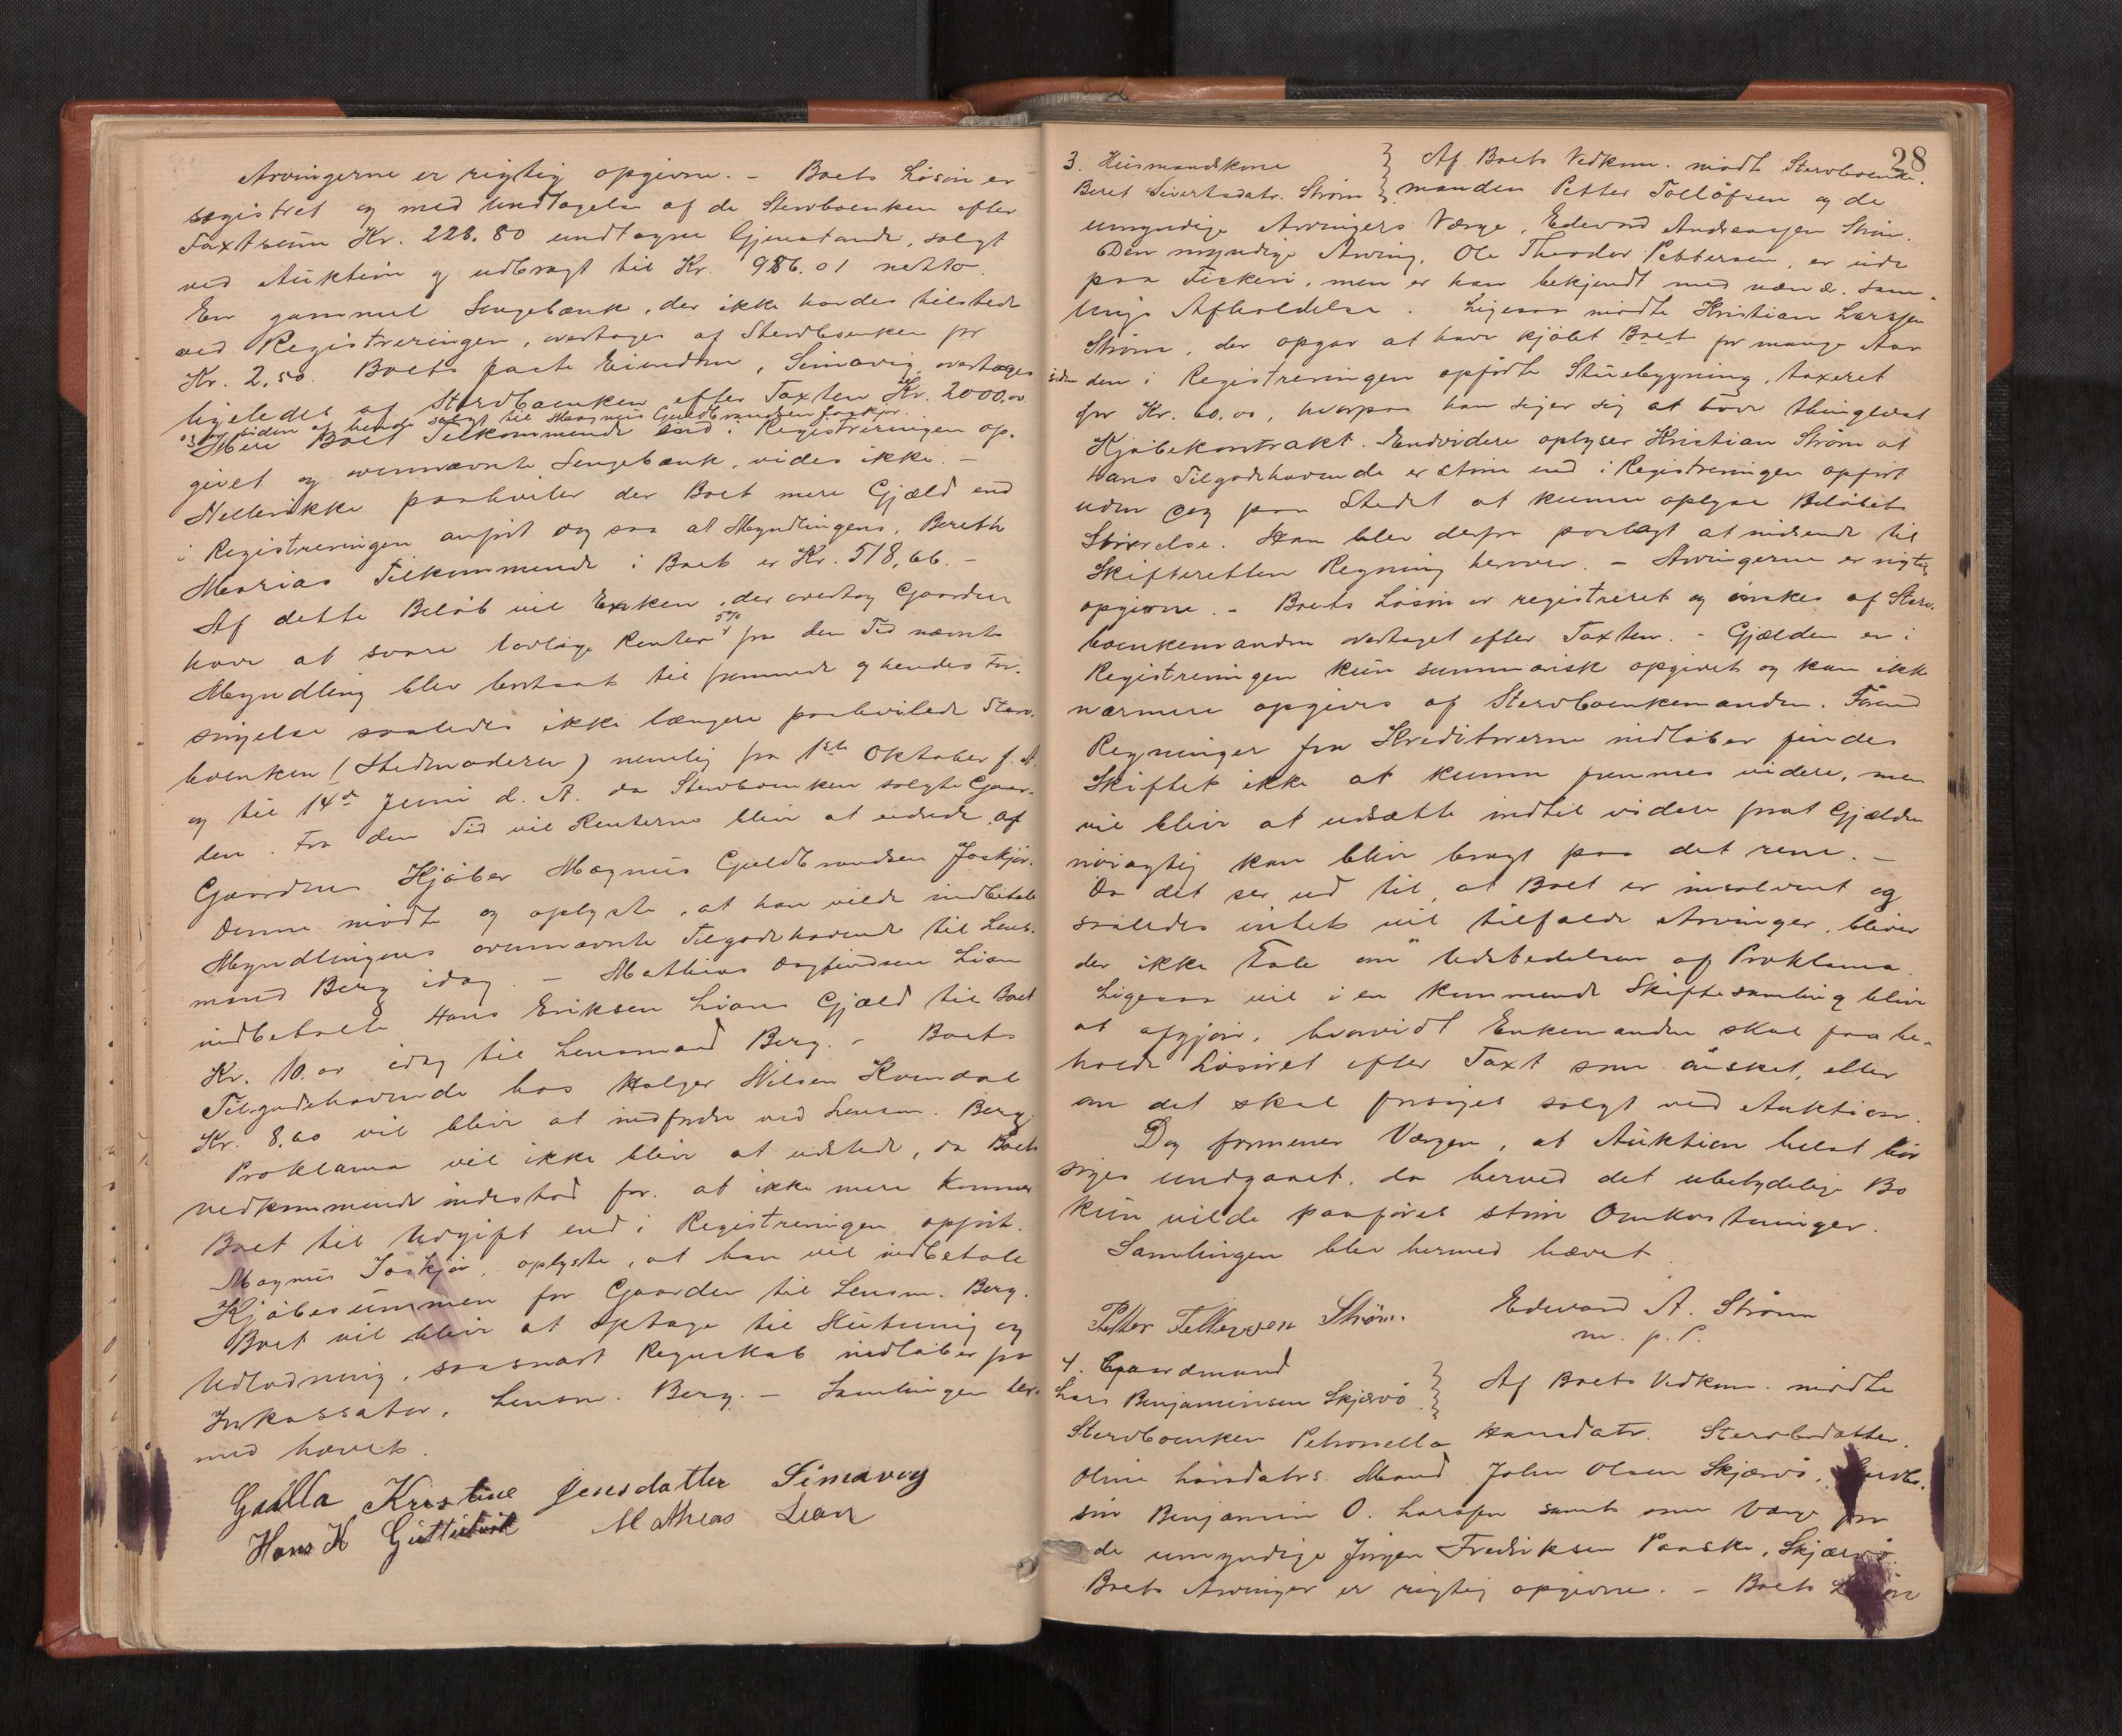 Arvingerne er rigtig opgivne. - Boets Løsøre er
registret og med Undtagelse af de Stervboenken efter
Taxtsum Kr. 228.80 undtagne Gjenstande, solgt
ved Auktion og udbragt til Kr. 986.01 netto.
En gammel Sengebænk, der ikke havdes tilstede
ved Registreringen, overtages af Stervboenken for
Kr. 2,50. Boets faste Eiendom, Simavig, overtages
ligeledes af Stervboenken efter Taxten Kr. 2000.00
og er siden af hende solgt til Magnus Guldbrandsen Joskjør.
Mere Boet Tilkommende end i Registreringen op-
givet og ovennævnte Sengebænk, vides ikke. -
Hellerikke paahviler der Boet mere Gjæld end
i Registreringen anført og saa at Myndlingens, Bereth
Marias Tilkommende i Boet er Kr. 518,66. -
Af dette Beløb vil Enken, der overtog Gaarden
have at svare lovlige Renter 5% fra den Tid nævnte
Myndling blev bortsat til fremmede og hendes For-
sørgelse saaledes ikke længere paahvilede Sterv-
boenken (Stedmoderen) nemlig fra 1ste Oktober f. A.
og til 14de Juni d. A. da Stervboenken solgte Gaar-
den. Fra den Tid vil Renterne blive at udrede af
Gaardens Kjøber Magnus Guldbrandsen Joskjør.
Denne mødte og oplyste, at han vilde indbetale
Myndlingens ovennævnte Tilgodehavende til Lens-
mand Berg idag. - Mathias Dagfindsen Lian
indbetalte Hans Eriksen Lians Gjæld til Boet
Kr. 10.00 idag til Lensmand Berg. - Boets
Tilgodehavende hos Holger Nilsen Kvendal
Kr. 8.60 vil blive at indfordre ved Lensm. Berg.
Proklama vil ikke blive at udstede, da Boets
Vedkommende indestod for at ikke mere kommer
Boet til Udgift end i Registreringen opført.
Magnus Joskjør, oplyste, at han vil indbetale
Kjøbesummen for Gaarden til Lensm. Berg.
Boet vil blive at optage til Slutning og
Udlodning, saasnart Regnskab indløber fra
Inkassator, Lensm. Berg. - Samlingen her-
med hævet.
Gulla Kristine Jensdatter Simavig
Hans K Mathias Lian
28
3. Husmandskone } Af Boets Vedkom. mødte Stervboenke-
Beret Sivertsdatr. Strøm } manden Petter Tollöfsen og de
umyndige Arvingers Værge, Edevard Andreassen Strøm.
Den myndige Arving, Ole Theodor Pettersen, er ude
paa Fiskeri, men er han bekjendt med nærv. Sam-
lings Afholdelse. Ligesaa mødte Kristian Larssen
Strøm, der opgav at have kjøbt Boet for mange Aar
siden den i Registreringen opførte Stuebygning, taxeret
for Kr. 60.00, hvorpaa han siger sig at have thinglæst
Kjøbekontrakt. Endvidere oplyser Kristian Strøm at
Hans Tilgodehavende er større end i Registreringen opført
uden dog paa Stedet at kunne oplyse Beløbets
Størrelse. Han blev derfor paalagt at indsende til
Skifteretten Regning herover. - Arvingerne er rigtig
opgivne. - Boets Løsøre er registreret og ønskes af Sterv-
boenkemanden overtaget efter Taxten. - Gjælden er i
Registreringen kun summarisk opgivet og kan ikke
nærmere opgives af Stervboenkemanden. Førend
Regninger fra Kreditorerne indløber findes
Skiftet ikke at kunne fremmes videre, men
vil blive at udsætte indtil videre forat Gjælden
nøiagtig kan blive bragt paa det rene. -
Da det ser ud til, at Boet er insolvent og
saaledes intet vil tilfalde Arvinger, bliver
der ikke Tale om Udstedelsen af Proklama.
Ligesaa vil i en kommende Skiftesamling blive
at afgjøre, hvorvidt Enkemanden skal faa be-
holde Løsøret efter Taxt som ønsket, eller
om det skal forsøges solgt ved Auktion.
Dog formener Værgen, at Auktion helst bør
søges undgaaet, da herved det ubetydelige Bo
kun vilde paaføres større Omkostninger.
Samlingen blev hermed hævet.
Petter Strøm. Edevard A. Strøm
m. p. P.
4. Gaardmand } Af Boets Vedkom. mødte
Lars Benjaminsen Skjærvø }
Stervboenken Petronella Hansdatr. Stervbodatter,
Oline Larsdatrs. Mand John Olsen Skjærvø, Stervbo-
søn Benjamin O. Larssen samt som Værge for
de umyndige Jørgen Fredriksen Paaske, Skjærvø.
Boets Arvinger er rigtig opgivne. - Boets Løsøre